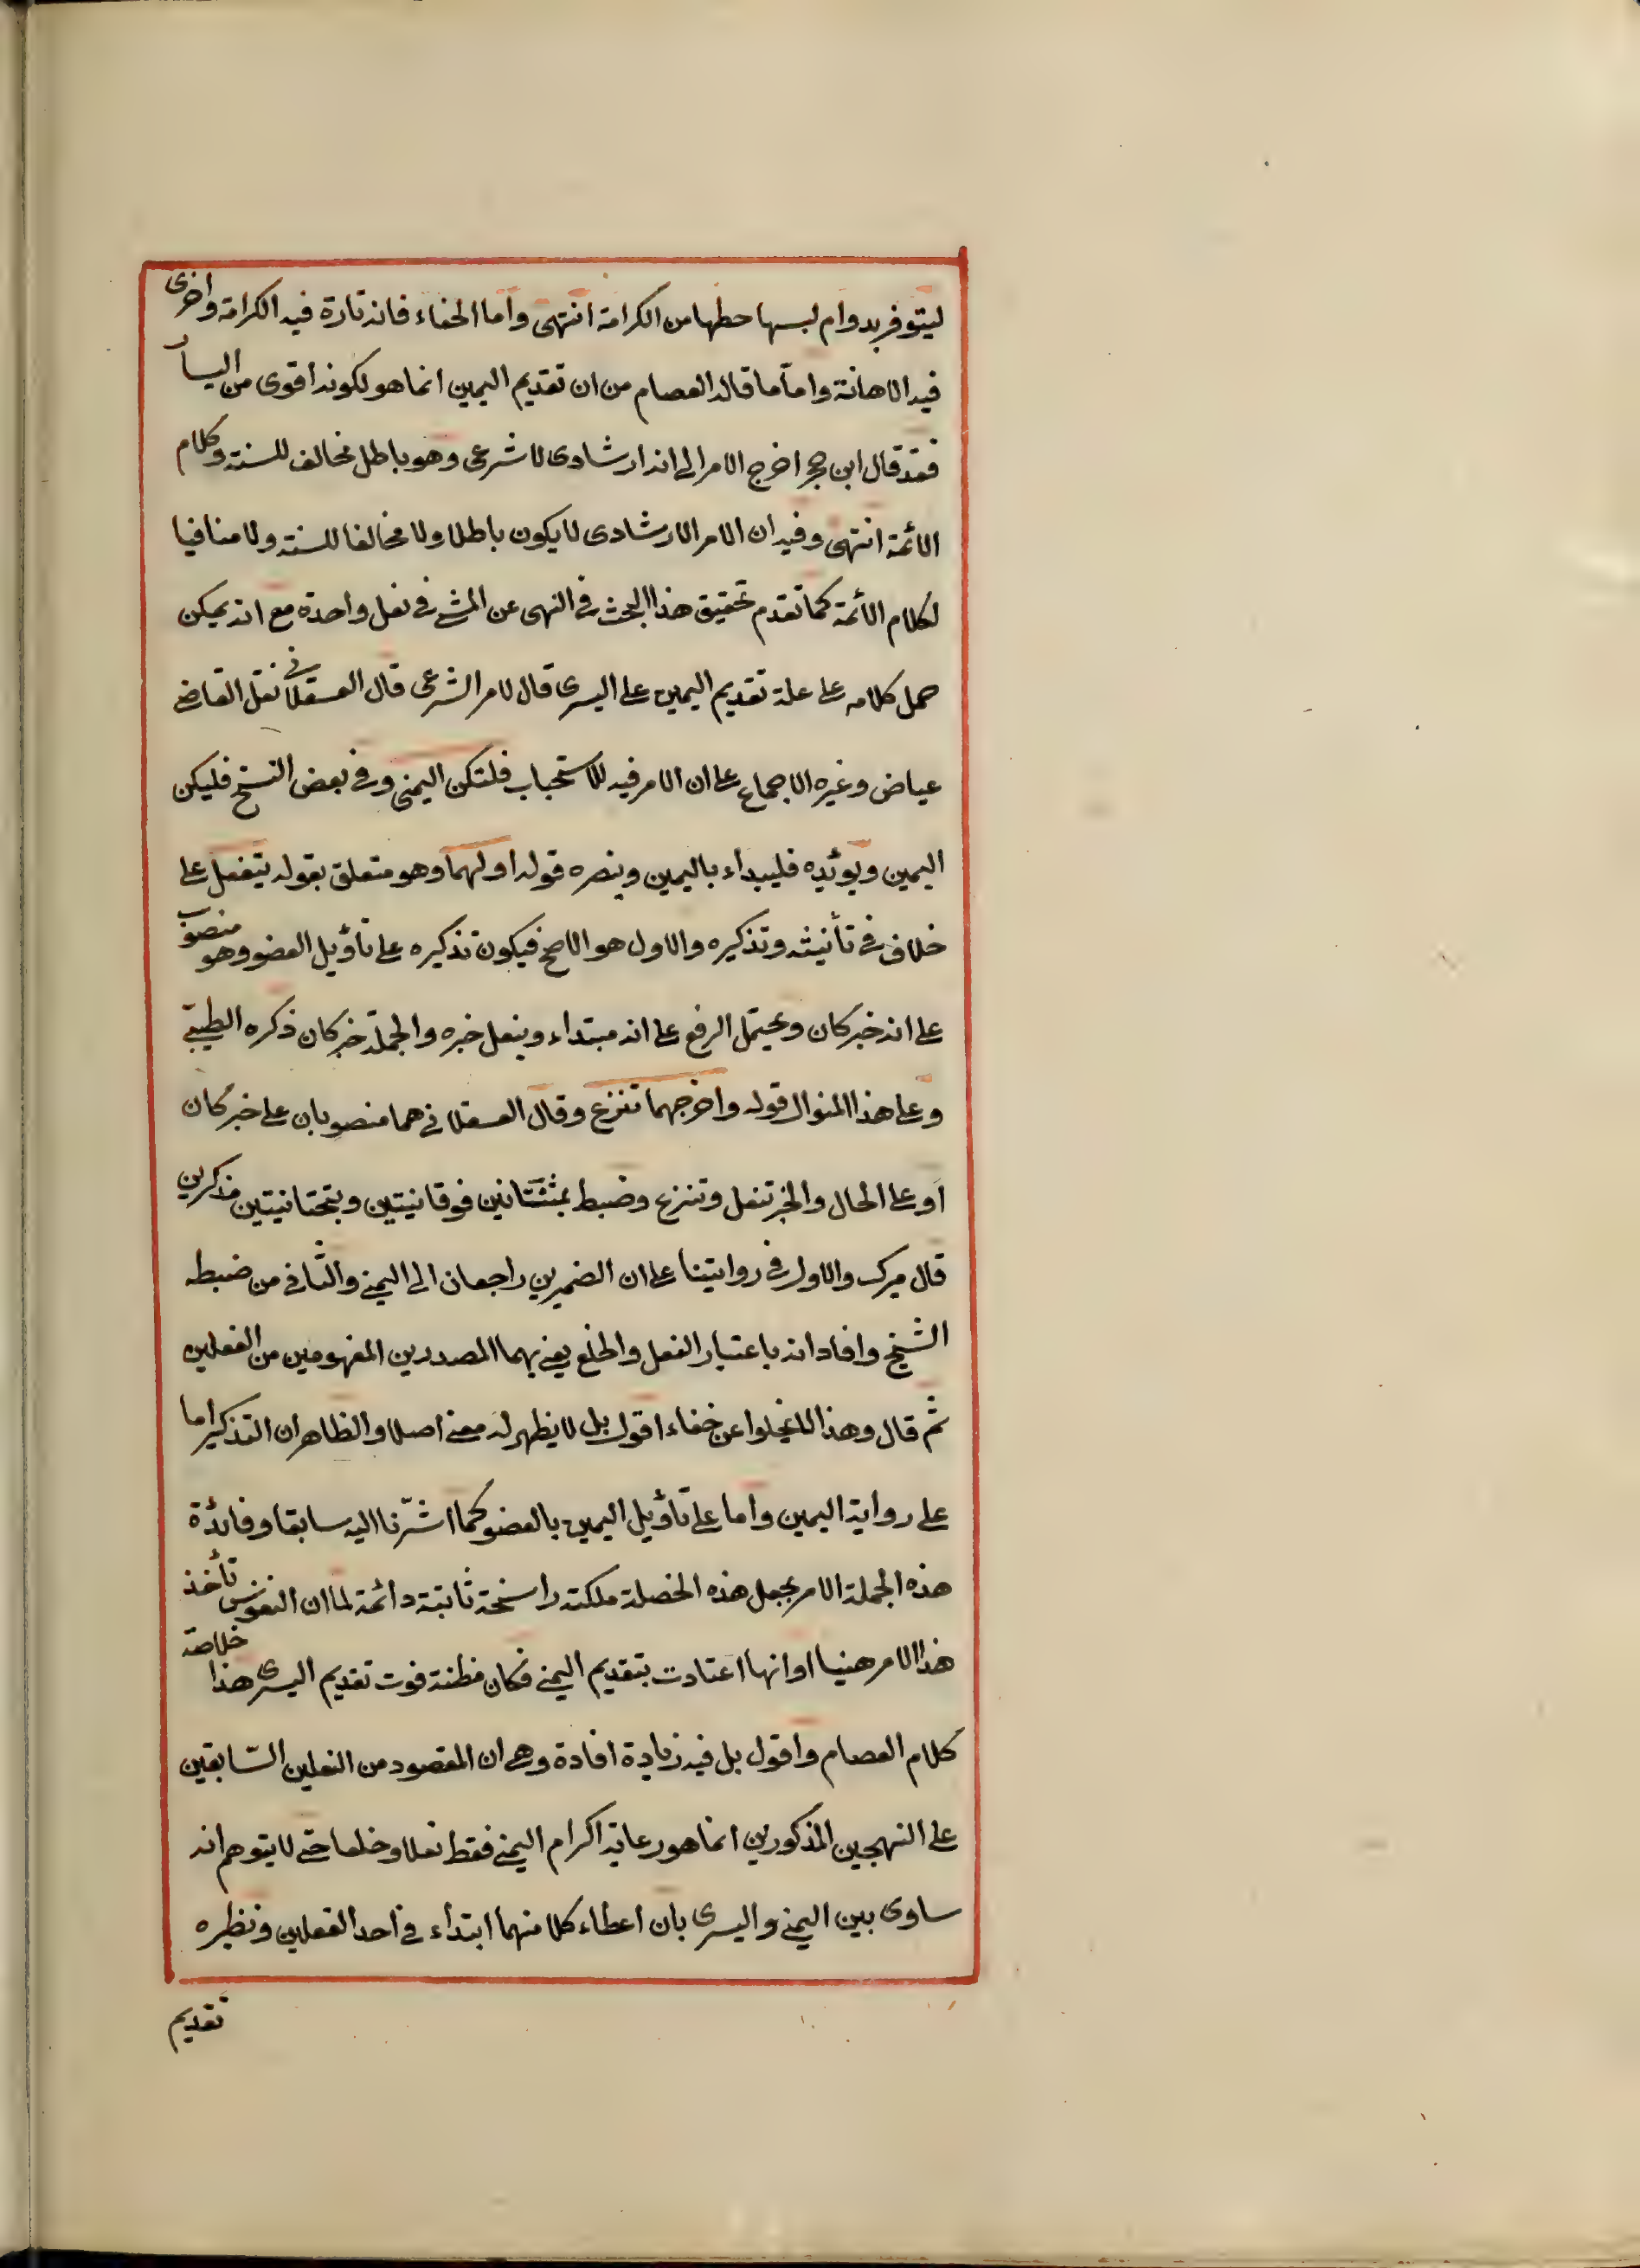 ليتوفر بدوام لبسها حطها من الكرامة انتهى واما الحفاء فانه تارة فيه الكرامة واخرى
فيه الاهانة واما ما قاله العصام من ان تقديم اليمين انما هو لكونه اقوى من اليسار
فقد قال ابن حجر اخرج الامر الى انه ارشادى لا شرعى وهو باطل مخالف للسنة وكلام
الائمة انتهى وفيه ان الامر الارشادى لا يكون باطلا ولا مخالفا للسنة ولا منافيا
لكلام الائمة كما تقدم تحقيق هذا البحث فى النهى عن المشى فى نعل واحدة مع انه يمكن
حمل كلامه على علة تقديم اليمين على اليسرى قال لامر الشرعى قال العسقلانى نقل القاضى
عياض وغيره الاجماع على ان الامر فيه للاستحباب فلتكن اليمنى وفى بعض النسخ فليكن
اليمين ويؤيده فليبداء باليمين وينصره قوله اولهما وهو متعلق بقوله يتنعل على
خلاف فى تأنيثه وتذكيره والاول هو الاصح فيكون تذكيره على تأويل العضو وهو منصوب
على انه خبر كان ويحتمل الرفع على انه مبتداء وينعل خبره والجملة خبر كان ذكره الطيبى
وعلى هذا المنوال قوله واخرجهما تنزع وقال العسقلانى هما منصوبان على خبر كان
او على الحال والخبر تنعل وتنزع وضبط بمثناتين فوقانيتين وبتحتانيتين مذكرين
قال ميرك والاول فى روايتنا على ان الضميرين راجعان الى اليمنى والثانى من ضبطه
الشيخ وافاد انه باعتبار النعل والخلع يعنى بهما المصدرين المفهومين من الفعلين
ثم قال وهذا لا يخلوا عن خفاء اقول بل لا يظهر له معنى اصلا والظاهر ان التذكير اما
على رواية اليمين واما على تأويل اليمين بالعضو كما اشرنا اليه سابقا وفائدة
هذه الجملة الامر بجعل هذه الخصلة ملكة راسخة ثابتة دائمة لما ان النفوس تأخذ
هذا الامر هنيا او انها اعتادت بتقديم اليمنى فكان مظنة فوت تقديم اليسرى هذا خلاصة
كلام العصام واقول بل فيه زيادة افادة وهى ان المقصود من النعلين السابقين
على النهجين المذكورين انما هو رعاية اكرام اليمنى فقط نعلا وخلعا حتى لا يتوهم انه
ساوى بين اليمنى واليسرى بان اعطاء كلا منهما ابتداء فى احد الفعلين ونظيره
تقديم